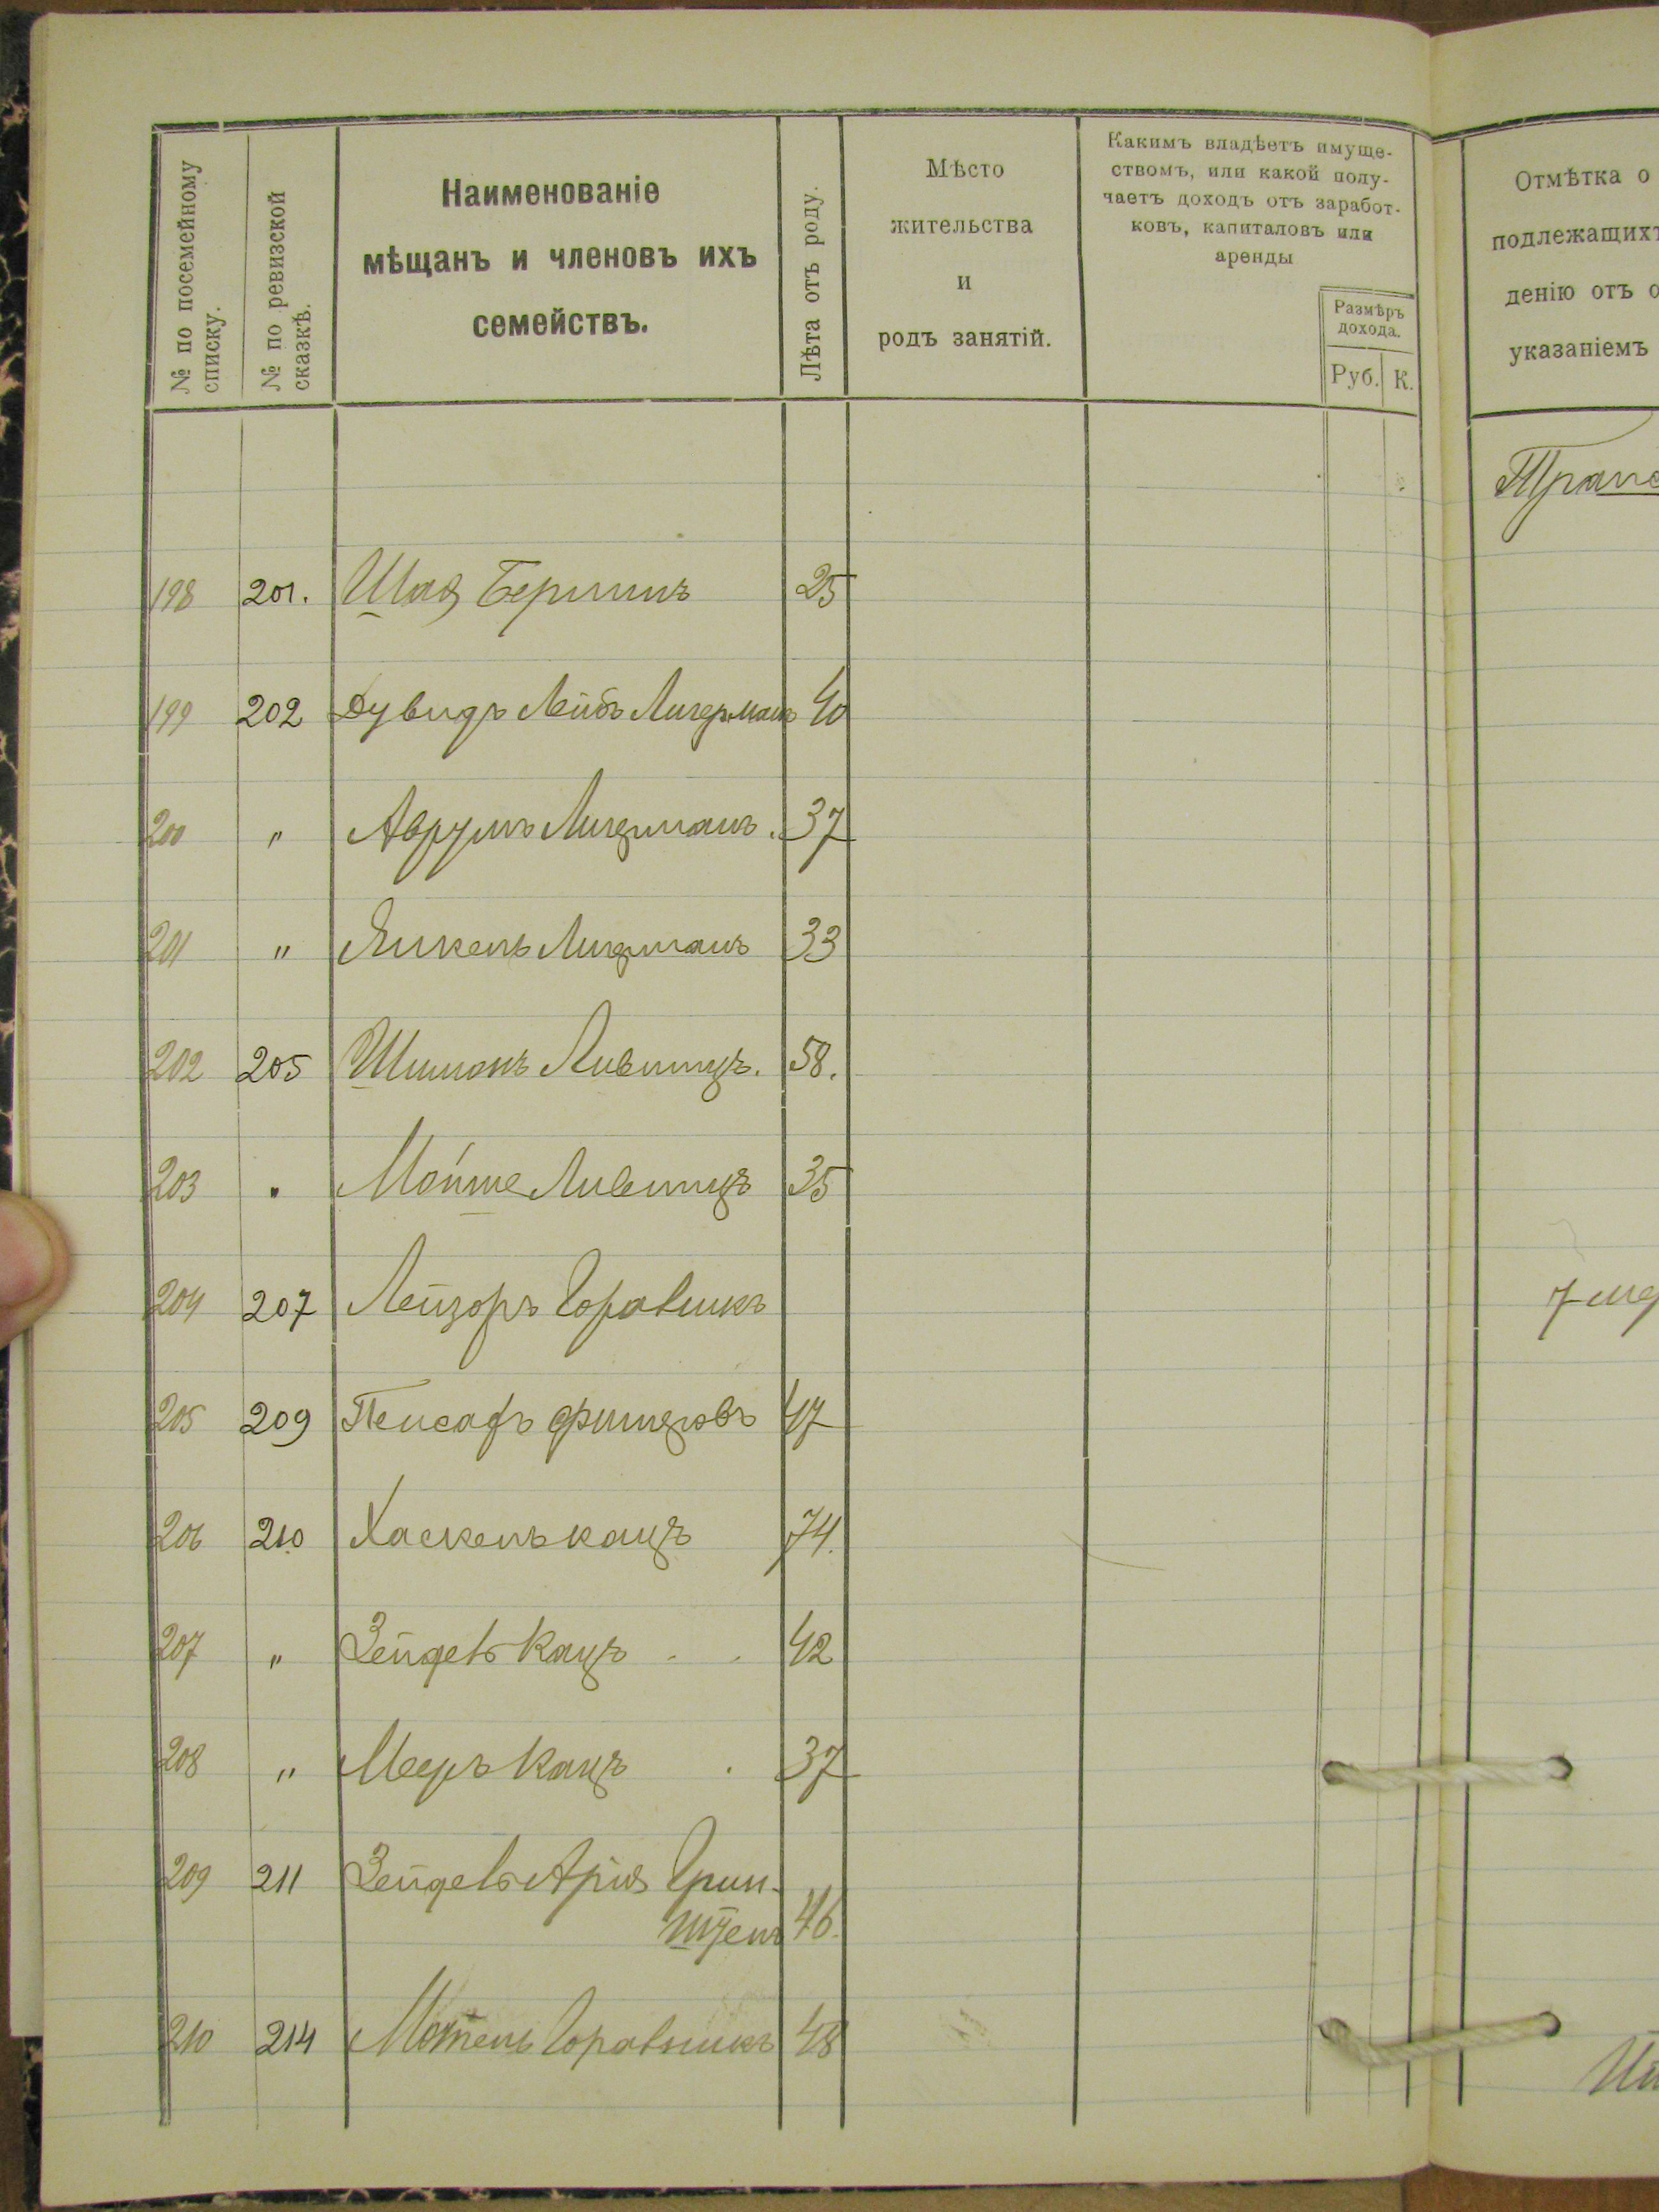 № по посемейному
списку.
№ по ревизской
сказкѣ.
Наименованіе
мѣщанъ и членовъ ихъ
семействъ.
Лѣта отъ роду.
Мѣсто
жительства
и
родъ занятій.
Какимъ владѣетъ имуще-
ствомъ, или какой полу-
чаетъ доходъ отъ заработ-
ковъ, капиталовъ или
аренды
Размѣръ
дохода.
Руб. К.
Отмѣтка о
подлежащихъ
денію отъ о
указаніемъ
198 201. Шая Берлинъ 25
199 202 Дувидъ Лейбъ Лигерманъ 40
200 " Аврумъ Лигерманъ. 37
201 " Янкель Лигерманъ 33
202 205 Шимонъ Лившицъ. 58.
203 " Мойше Лившицъ 35
204 207 Лейзоръ Горавникъ
205 209 Пейсахъ 47
206 210 Хаскель Кацъ 74.
207 " Зейдель Кацъ 42
208 " Мееръ Кацъ 37
209 211 Зейдель Арія Грин-
штейнъ 46.
210 214 Мотель Горавникъ 48